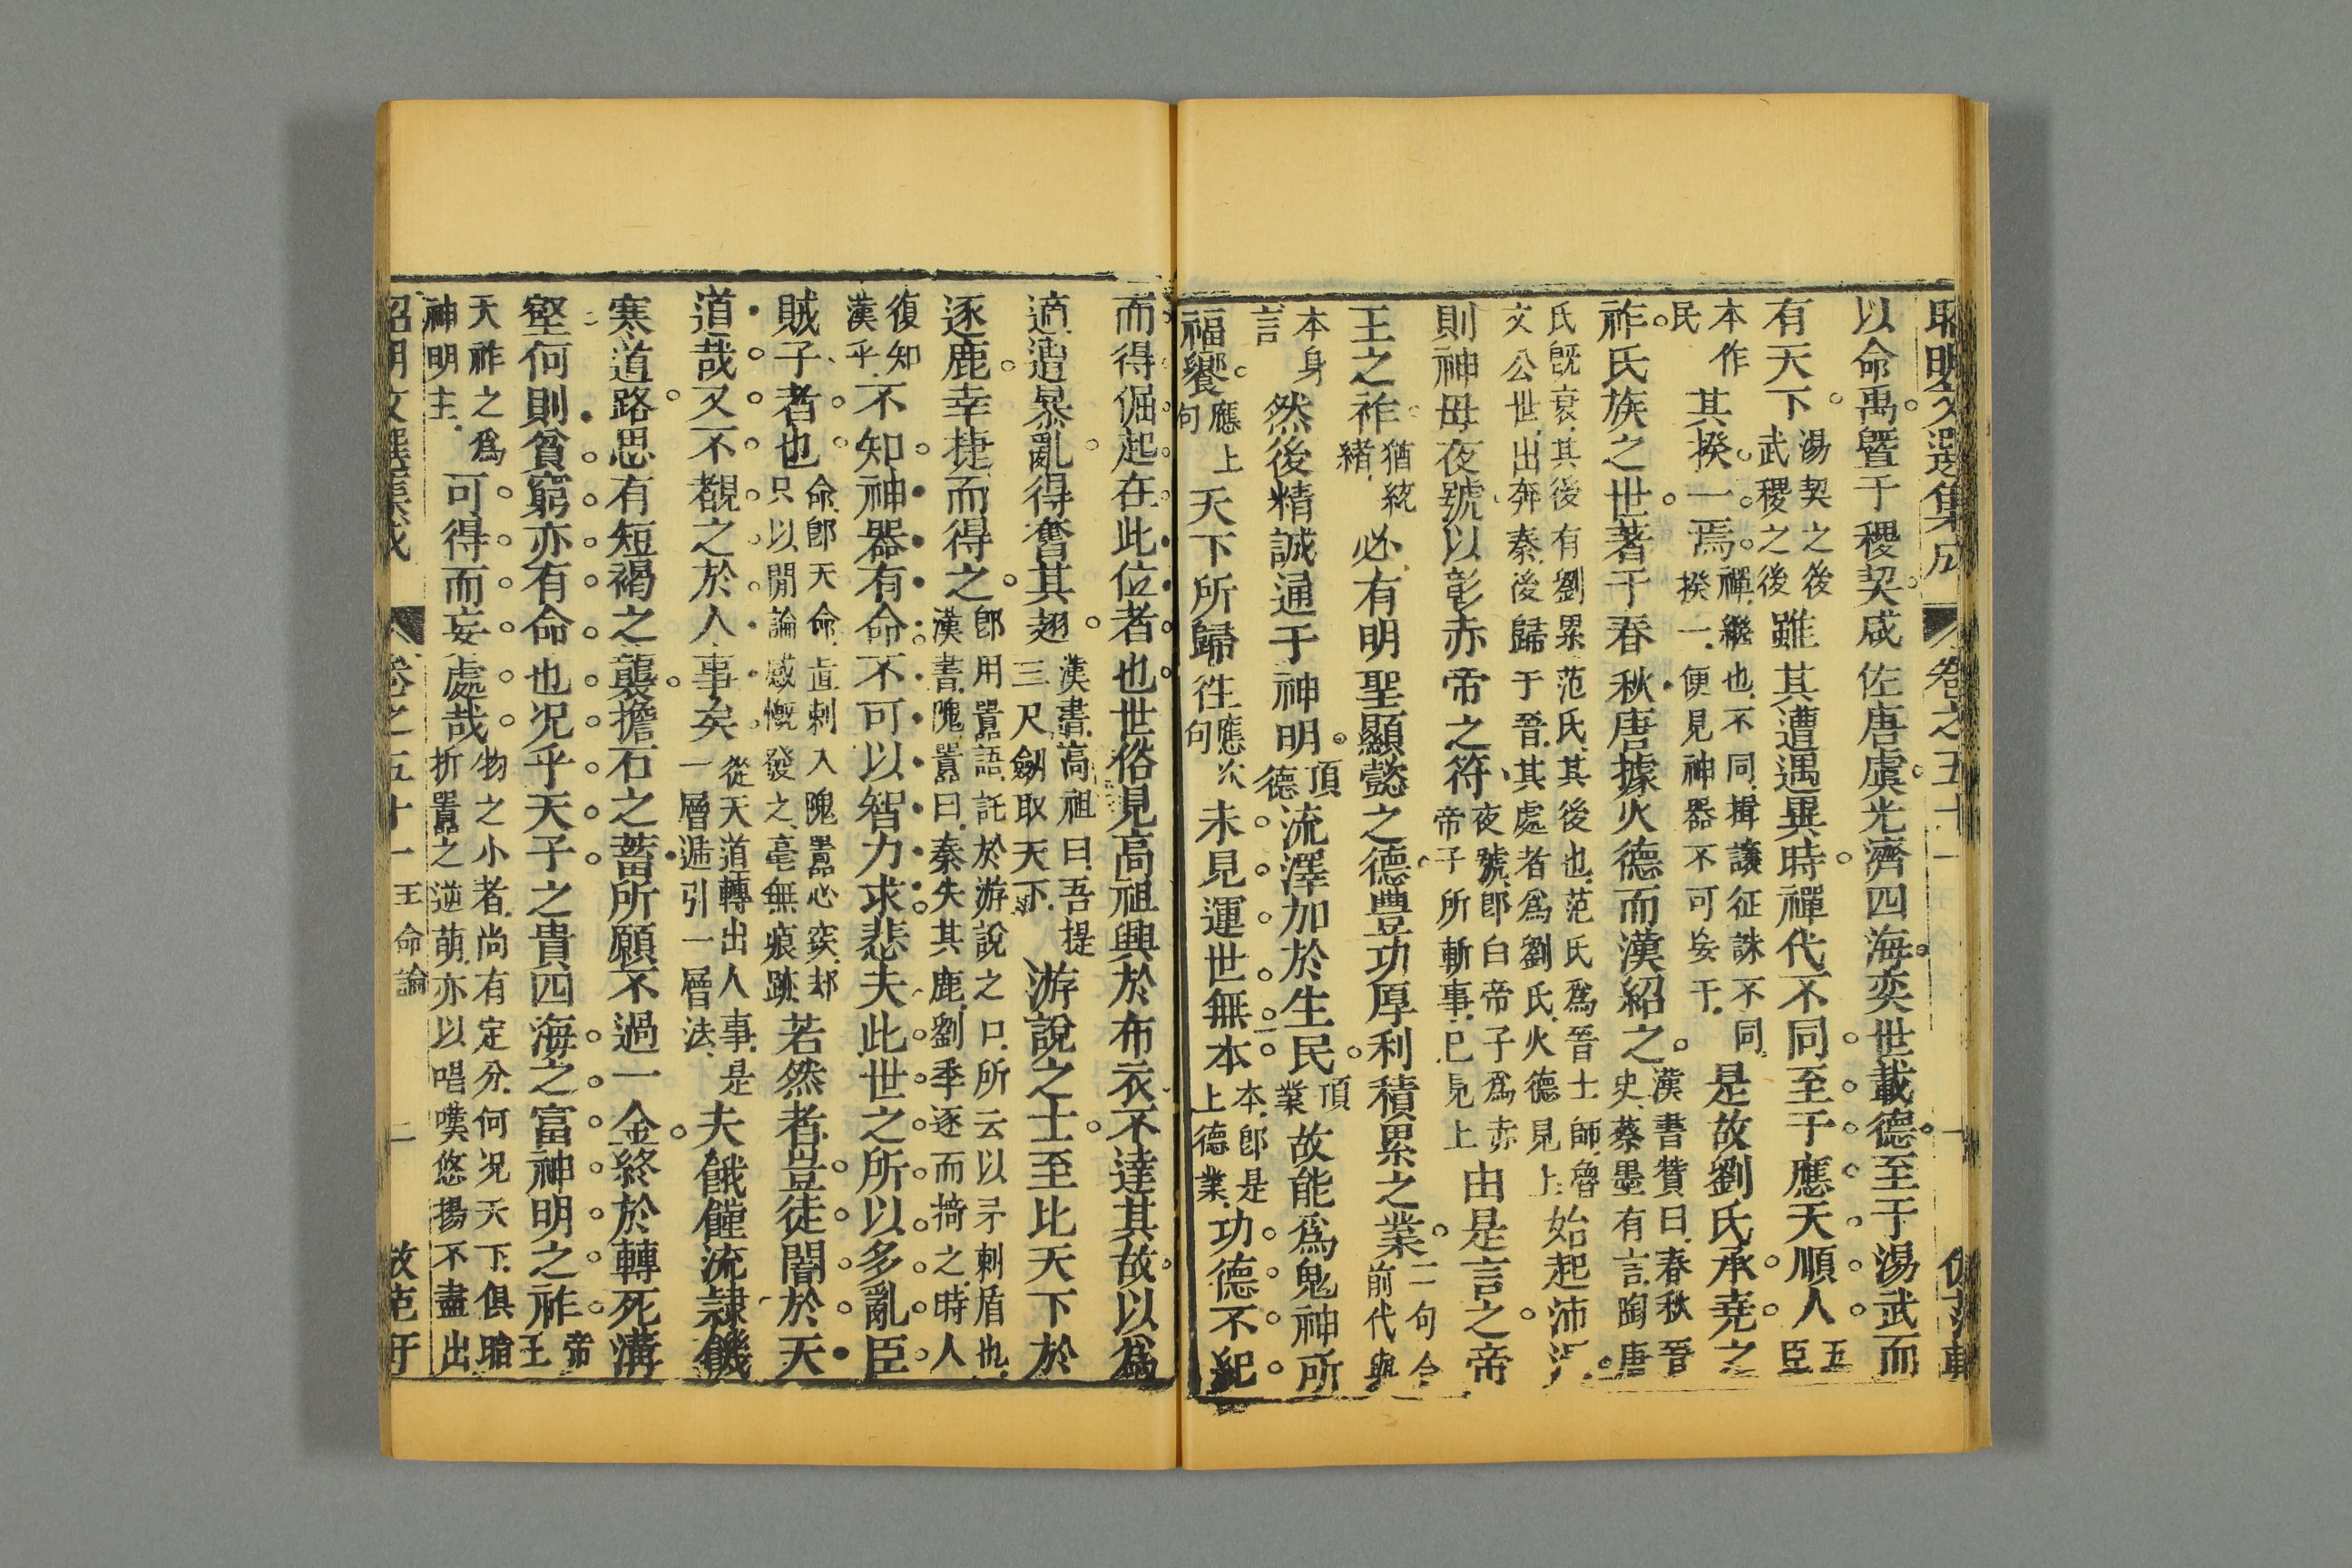 昭明文選集成 卷之五十一
以命禹曁于稷契咸佐唐虞光濟四海奕世載德至于湯武而
有天下湯契之後武稷之後雖其遭遇異時禪代不同至于應天順人五臣
本作民其揆一焉禪繼也不同揖讓征誅不同揆一便見神器不可妄干是故劉氏承堯之
祚氏族之世著于春秋唐據火德而漢紹之漢書贊曰春秋晉史蔡墨有言陶唐
氏既衰其後有劉累范氏其後也范氏爲晉士師魯文公世出奔秦後歸于晉其處者爲劉氏火德見上始起沛澤
則神母夜號以彰赤帝之符夜號卽白帝子爲赤帝子所斬事已見上由是言之帝
王之祚猶統緒必有明聖顯懿之德豐功厚利積累之業二句合前代與
本身言然後精誠通于神明頂德流澤加於生民頂業故能爲鬼神所
福饗應上句天下所歸往應次句未見運世無本本卽是上德業功德不紀
而得倔起在此位者也世俗見高祖興於布衣不達其故以爲
適遭暴亂得奮其翅漢書高祖曰吾提三尺劒取天下游說之士至比天下於
逐鹿幸捷而得之卽用囂語託於游說之口所云以矛刺盾也漢書隗囂曰秦失其鹿劉季逐而掎之時人
復知漢乎不知神器有命不可以智力求悲夫此世之所以多亂臣
賊子者也命卽天命直刺入隗囂心窽却只以閒論感慨發之毫無痕跡若然者豈徒闇於天
道哉又不覩之於人事矣從天道轉出人事是一層遞引一層法夫餓饉流隷饑
寒道路思有短褐之襲擔石之蓄所願不過一金終於轉死溝
壑何則貧窮亦有命也况乎天子之貴四海之富神明之祚帝王
天祚之爲神明主可得而妄處哉物之小者尚有定分何况天下俱暗折囂之逆萌亦以唱嘆悠揚不盡出
昭明文選集成 卷之五十一 王命論 二